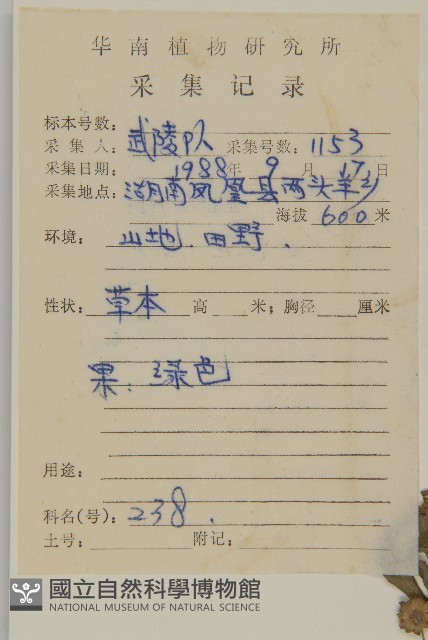 华南植物研究所
采集记录
标本号数:
采集人: 武陵队 采集号数: 1153
采集日期: 1988年 9 月 17 日
采集地点: 湖南凤凰县两头羊乡
海拔 600 米
环境: 山地. 田野.
性状: 草本 高 米; 胸径 厘米
果: 绿色
用途:
科名(号): 238.
土号: 附记:
國立自然科學博物館
NATIONAL MUSEUM OF NATURAL SCIENCE